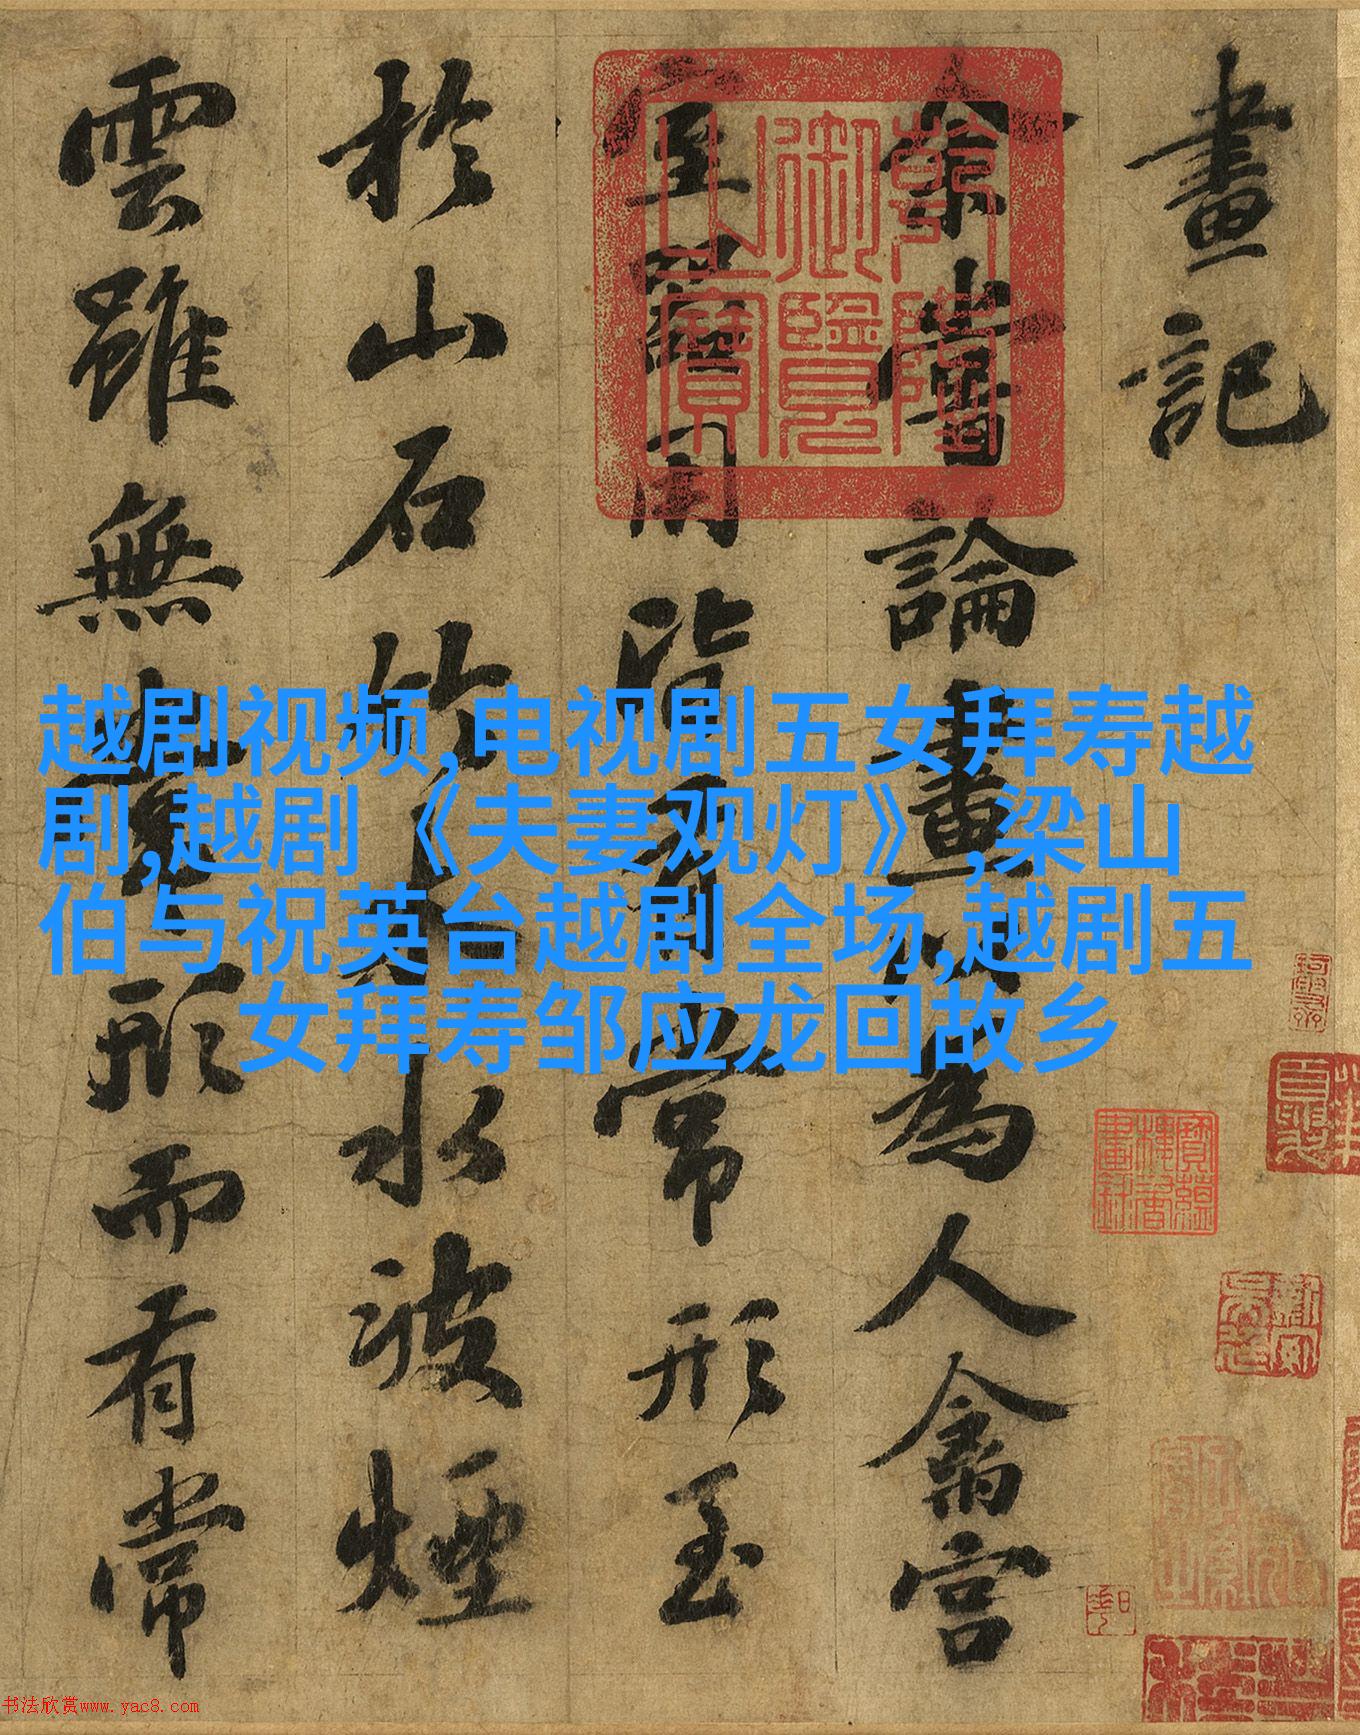 畫記
余嘗論畫以為人禽宮
室器用皆有常形至
於山石竹木水波煙
雲雖無常形而有常
乾隆
御覽
之寶
越剧视频,电视剧五女拜寿越
剧,越剧《夫妻观灯》,梁山
伯与祝英台越剧全场,越剧五
女拜寿邹应龙回故乡
书法欣赏www.yac8.com